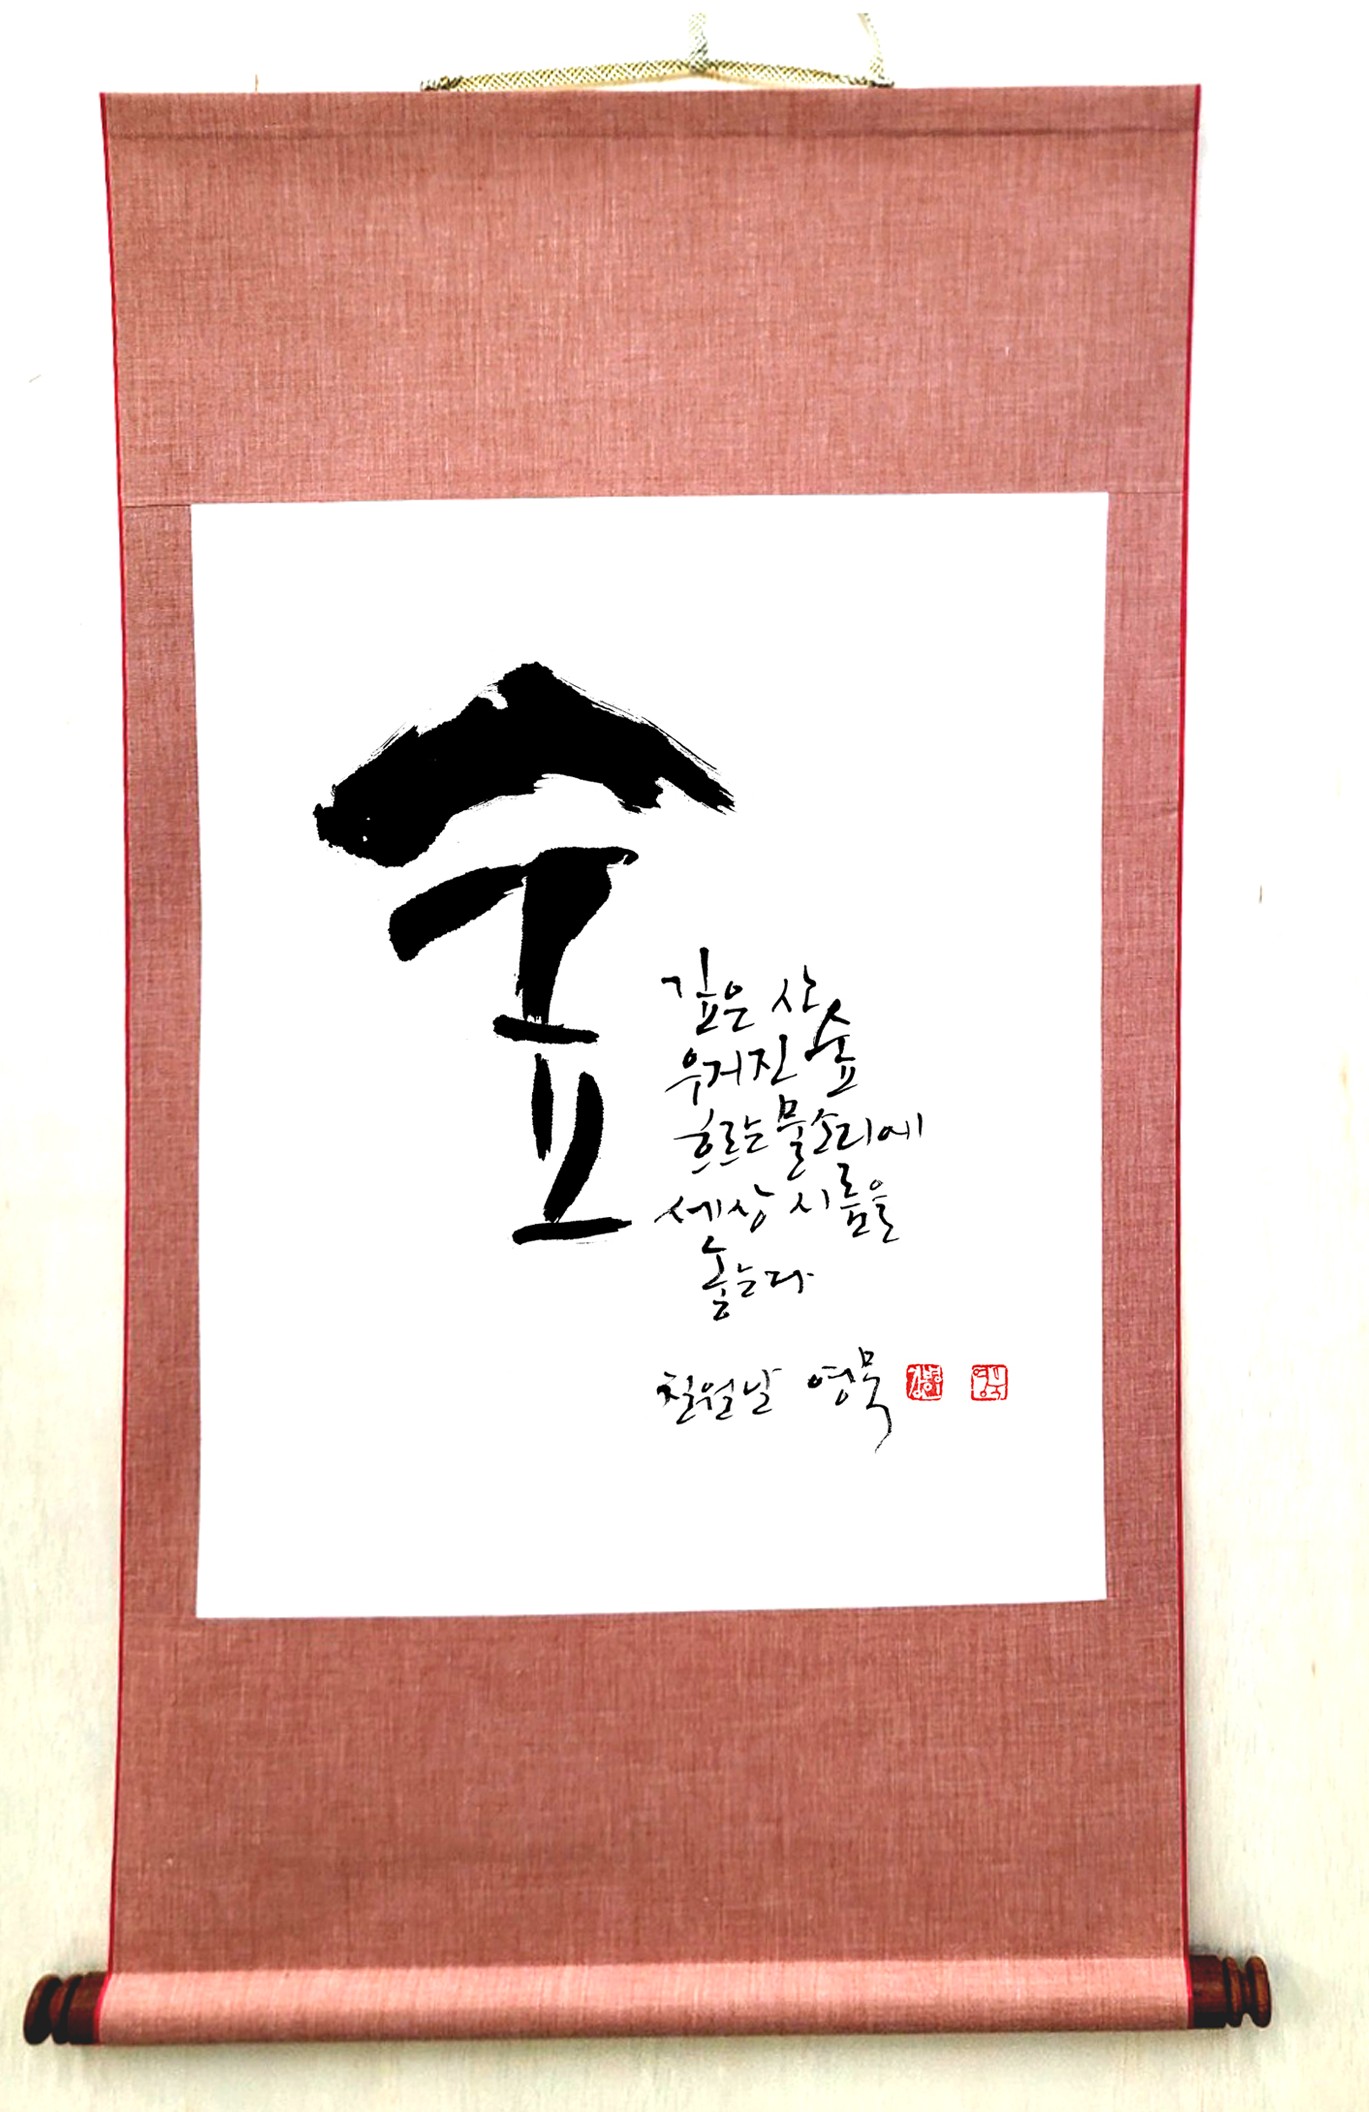 숲
깊은 산
우거진 숲
흐르는 물소리에
세상 시름을
놓는다
칠월날 영묵